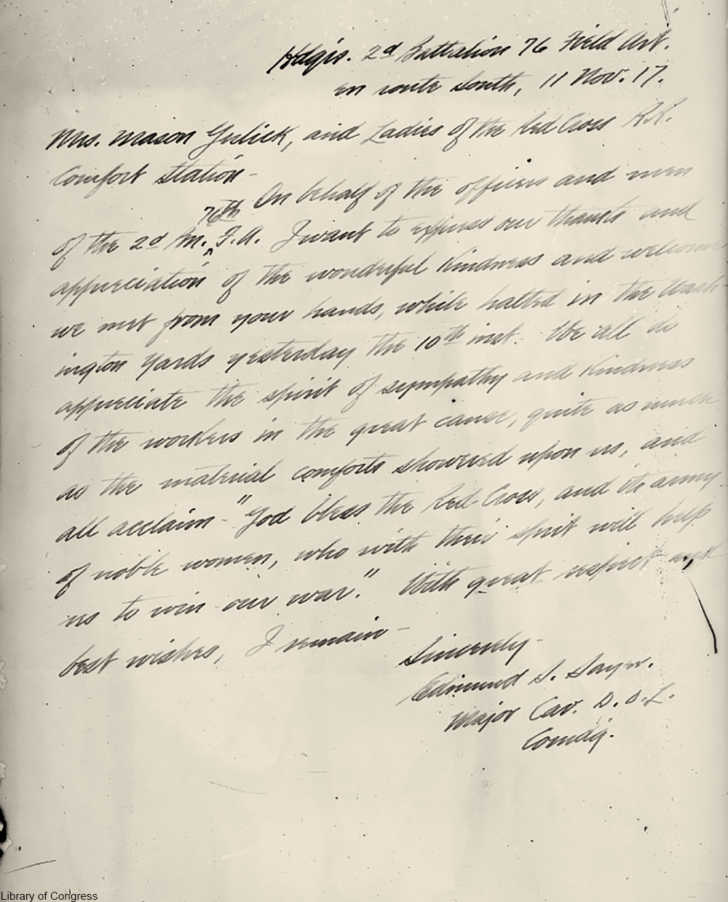 Hdqrs. 2d Battalion 76 Field Art.
en route South, 11 Nov. 17.
Mrs. Mason Gulick, and Ladies of the Red Cross R.R.
Comfort Station -
On behalf of the officers and men
of the 2d Bn. 76th F.A. I want to express our thanks and
appreciation of the wonderful kindness and welcome
we met from your hands, while halted in the Wash-
ington Yards yesterday the 10th inst. We all do
appreciate the spirit of sympathy and kindness
of the workers in the great cause, quite as much
as the material comforts showered upon us, and
all acclaim - "God bless the Red Cross, and its army
of noble women, who with their spirit will help
us to win our war." With great respect and
best wishes, I remain -
Sincerely -
Edmund S. Sayer.
Major Cav. D.O.L.
Comdg.
Library of Congress